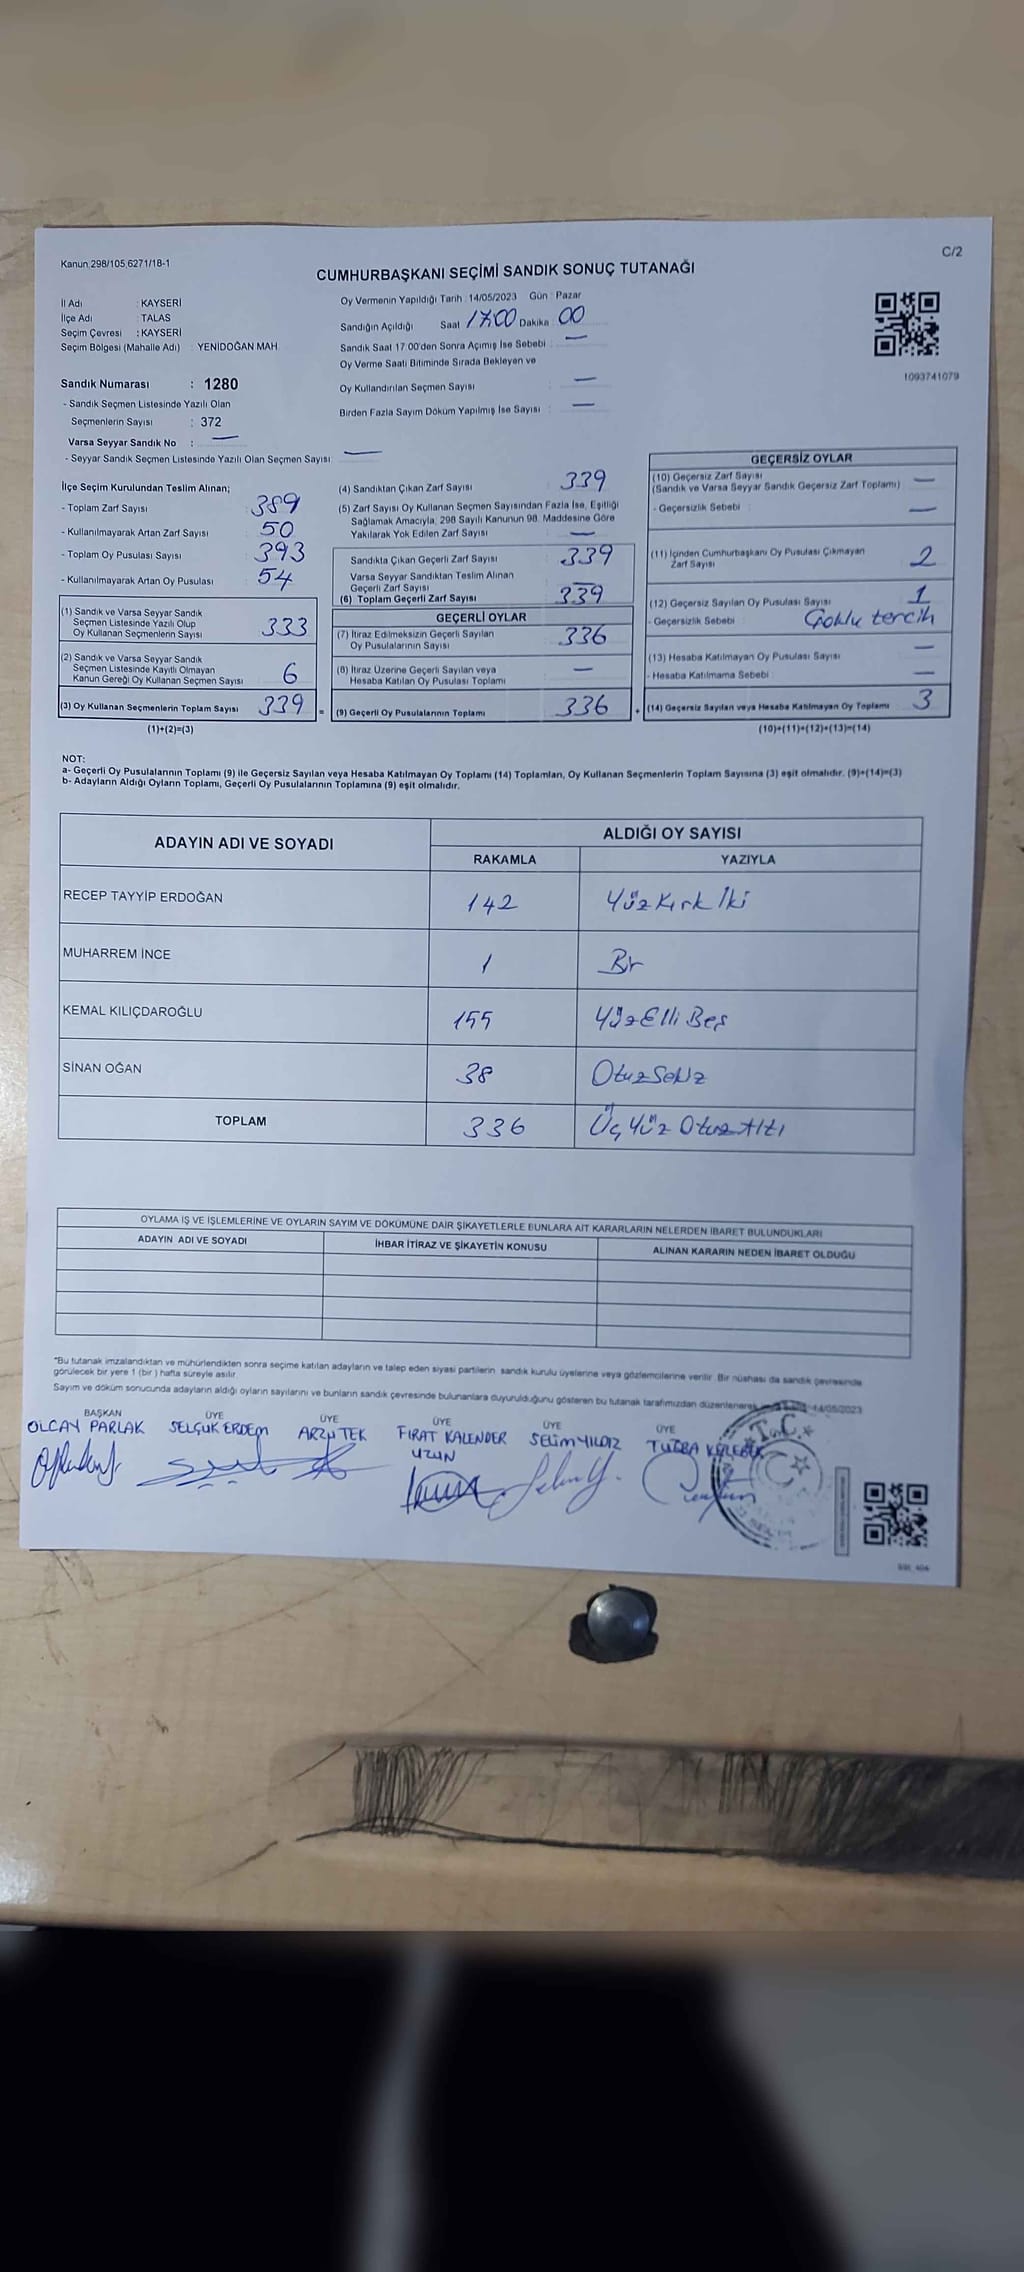 Kanun 298/105,6271/18-1
C/2
CUMHURBAŞKANI SEÇİMİ SANDIK SONUÇ TUTANAĞI
İl Adı : KAYSERİ
İlçe Adı : TALAS
Seçim Çevresi : KAYSERİ
Seçim Bölgesi (Mahalle Adı) : YENİDOĞAN MAH
Sandık Numarası : 1280
- Sandık Seçmen Listesinde Yazılı Olan
Seçmenlerin Sayısı : 372
Varsa Seyyar Sandık No : —
- Seyyar Sandık Seçmen Listesinde Yazılı Olan Seçmen Sayısı : —
Oy Vermenin Yapıldığı Tarih : 14/05/2023 Gün : Pazar
Sandığın Açıldığı Saat 17:00 Dakika : 00
Sandık Saat 17.00'den Sonra Açımış İse Sebebi : —
Oy Verme Saati Bitiminde Sırada Bekleyen ve
Oy Kullandırılan Seçmen Sayısı —
Birden Fazla Sayım Döküm Yapılmış İse Sayısı : —
1093741079
İlçe Seçim Kurulundan Teslim Alınan;
- Toplam Zarf Sayısı : 389
- Kullanılmayarak Artan Zarf Sayısı : 50
- Toplam Oy Pusulası Sayısı : 393
- Kullanılmayarak Artan Oy Pusulası : 54
(1) Sandık ve Varsa Seyyar Sandık
Seçmen Listesinde Yazılı Olup
Oy Kullanan Seçmenlerin Sayısı 333
(2) Sandık ve Varsa Seyyar Sandık
Seçmen Listesinde Kayıtlı Olmayan
Kanun Gereği Oy Kullanan Seçmen Sayısı 6
(3) Oy Kullanan Seçmenlerin Toplam Sayısı 339 =
(1)+(2)=(3)
(4) Sandıktan Çıkan Zarf Sayısı 339
(5) Zarf Sayısı Oy Kullanan Seçmen Sayısından Fazla İse, Eşitliği
Sağlamak Amacıyla, 298 Sayılı Kanunun 98. Maddesine Göre
Yakılarak Yok Edilen Zarf Sayısı : —
Sandıkta Çıkan Geçerli Zarf Sayısı 339
Varsa Seyyar Sandıktan Teslim Alınan
Geçerli Zarf Sayısı —
(6) Toplam Geçerli Zarf Sayısı 339
GEÇERLİ OYLAR
(7) İtiraz Edilmeksizin Geçerli Sayılan
Oy Pusulalarının Sayısı 336
(8) İtiraz Üzerine Geçerli Sayılan veya
Hesaba Katılan Oy Pusulası Toplamı —
(9) Geçerli Oy Pusulalarının Toplamı 336 +
GEÇERSİZ OYLAR
(10) Geçersiz Zarf Sayısı
(Sandık ve Varsa Seyyar Sandık Geçersiz Zarf Toplamı) —
- Geçersizlik Sebebi : —
(11) İçinden Cumhurbaşkanı Oy Pusulası Çıkmayan
Zarf Sayısı 2
(12) Geçersiz Sayılan Oy Pusulası Sayısı 1
- Geçersizlik Sebebi : Çoklu tercih
(13) Hesaba Katılmayan Oy Pusulası Sayısı —
- Hesaba Katılmama Sebebi : —
(14) Geçersiz Sayılan veya Hesaba Katılmayan Oy Toplamı 3
(10)+(11)+(12)+(13)=(14)
NOT:
a- Geçerli Oy Pusulalarının Toplamı (9) ile Geçersiz Sayılan veya Hesaba Katılmayan Oy Toplamı (14) Toplamları, Oy Kullanan Seçmenlerin Toplam Sayısına (3) eşit olmalıdır. (9)+(14)=(3)
b- Adayların Aldığı Oyların Toplamı, Geçerli Oy Pusulalarının Toplamına (9) eşit olmalıdır.
ADAYIN ADI VE SOYADI ALDIĞI OY SAYISI
RAKAMLA YAZIYLA
RECEP TAYYİP ERDOĞAN 142 Yüz Kırk İki
MUHARREM İNCE 1 Bir
KEMAL KILIÇDAROĞLU 155 Yüz Elli Beş
SİNAN OĞAN 38 Otuz Sekiz
TOPLAM 336 Üç Yüz Otuz Altı
OYLAMA İŞ VE İŞLEMLERİNE VE OYLARIN SAYIM VE DÖKÜMÜNE DAİR ŞİKAYETLERLE BUNLARA AİT KARARLARIN NELERDEN İBARET BULUNDUKLARI
ADAYIN ADI VE SOYADI İHBAR İTİRAZ VE ŞİKAYETİN KONUSU ALINAN KARARIN NEDEN İBARET OLDUĞU
*Bu tutanak imzalandıktan ve mühürlendikten sonra seçime katılan adayların ve talep eden siyasi partilerin sandık kurulu üyelerine veya gözlemcilerine verilir. Bir nüshası da sandık çevresinde
görülecek bir yere 1 (bir) hafta süreyle asılır.
Sayım ve döküm sonucunda adayların aldığı oyların sayılarını ve bunların sandık çevresinde bulunanlara duyurulduğunu gösteren bu tutanak tarafımızdan düzenlenerek 14/05/2023
BAŞKAN ÜYE ÜYE ÜYE ÜYE ÜYE
OLCAY PARLAK SELÇUK ERDEM ARZU TEK FIRAT KALENDER SELİM YILDIZ TUĞBA
UZUN
T.C.